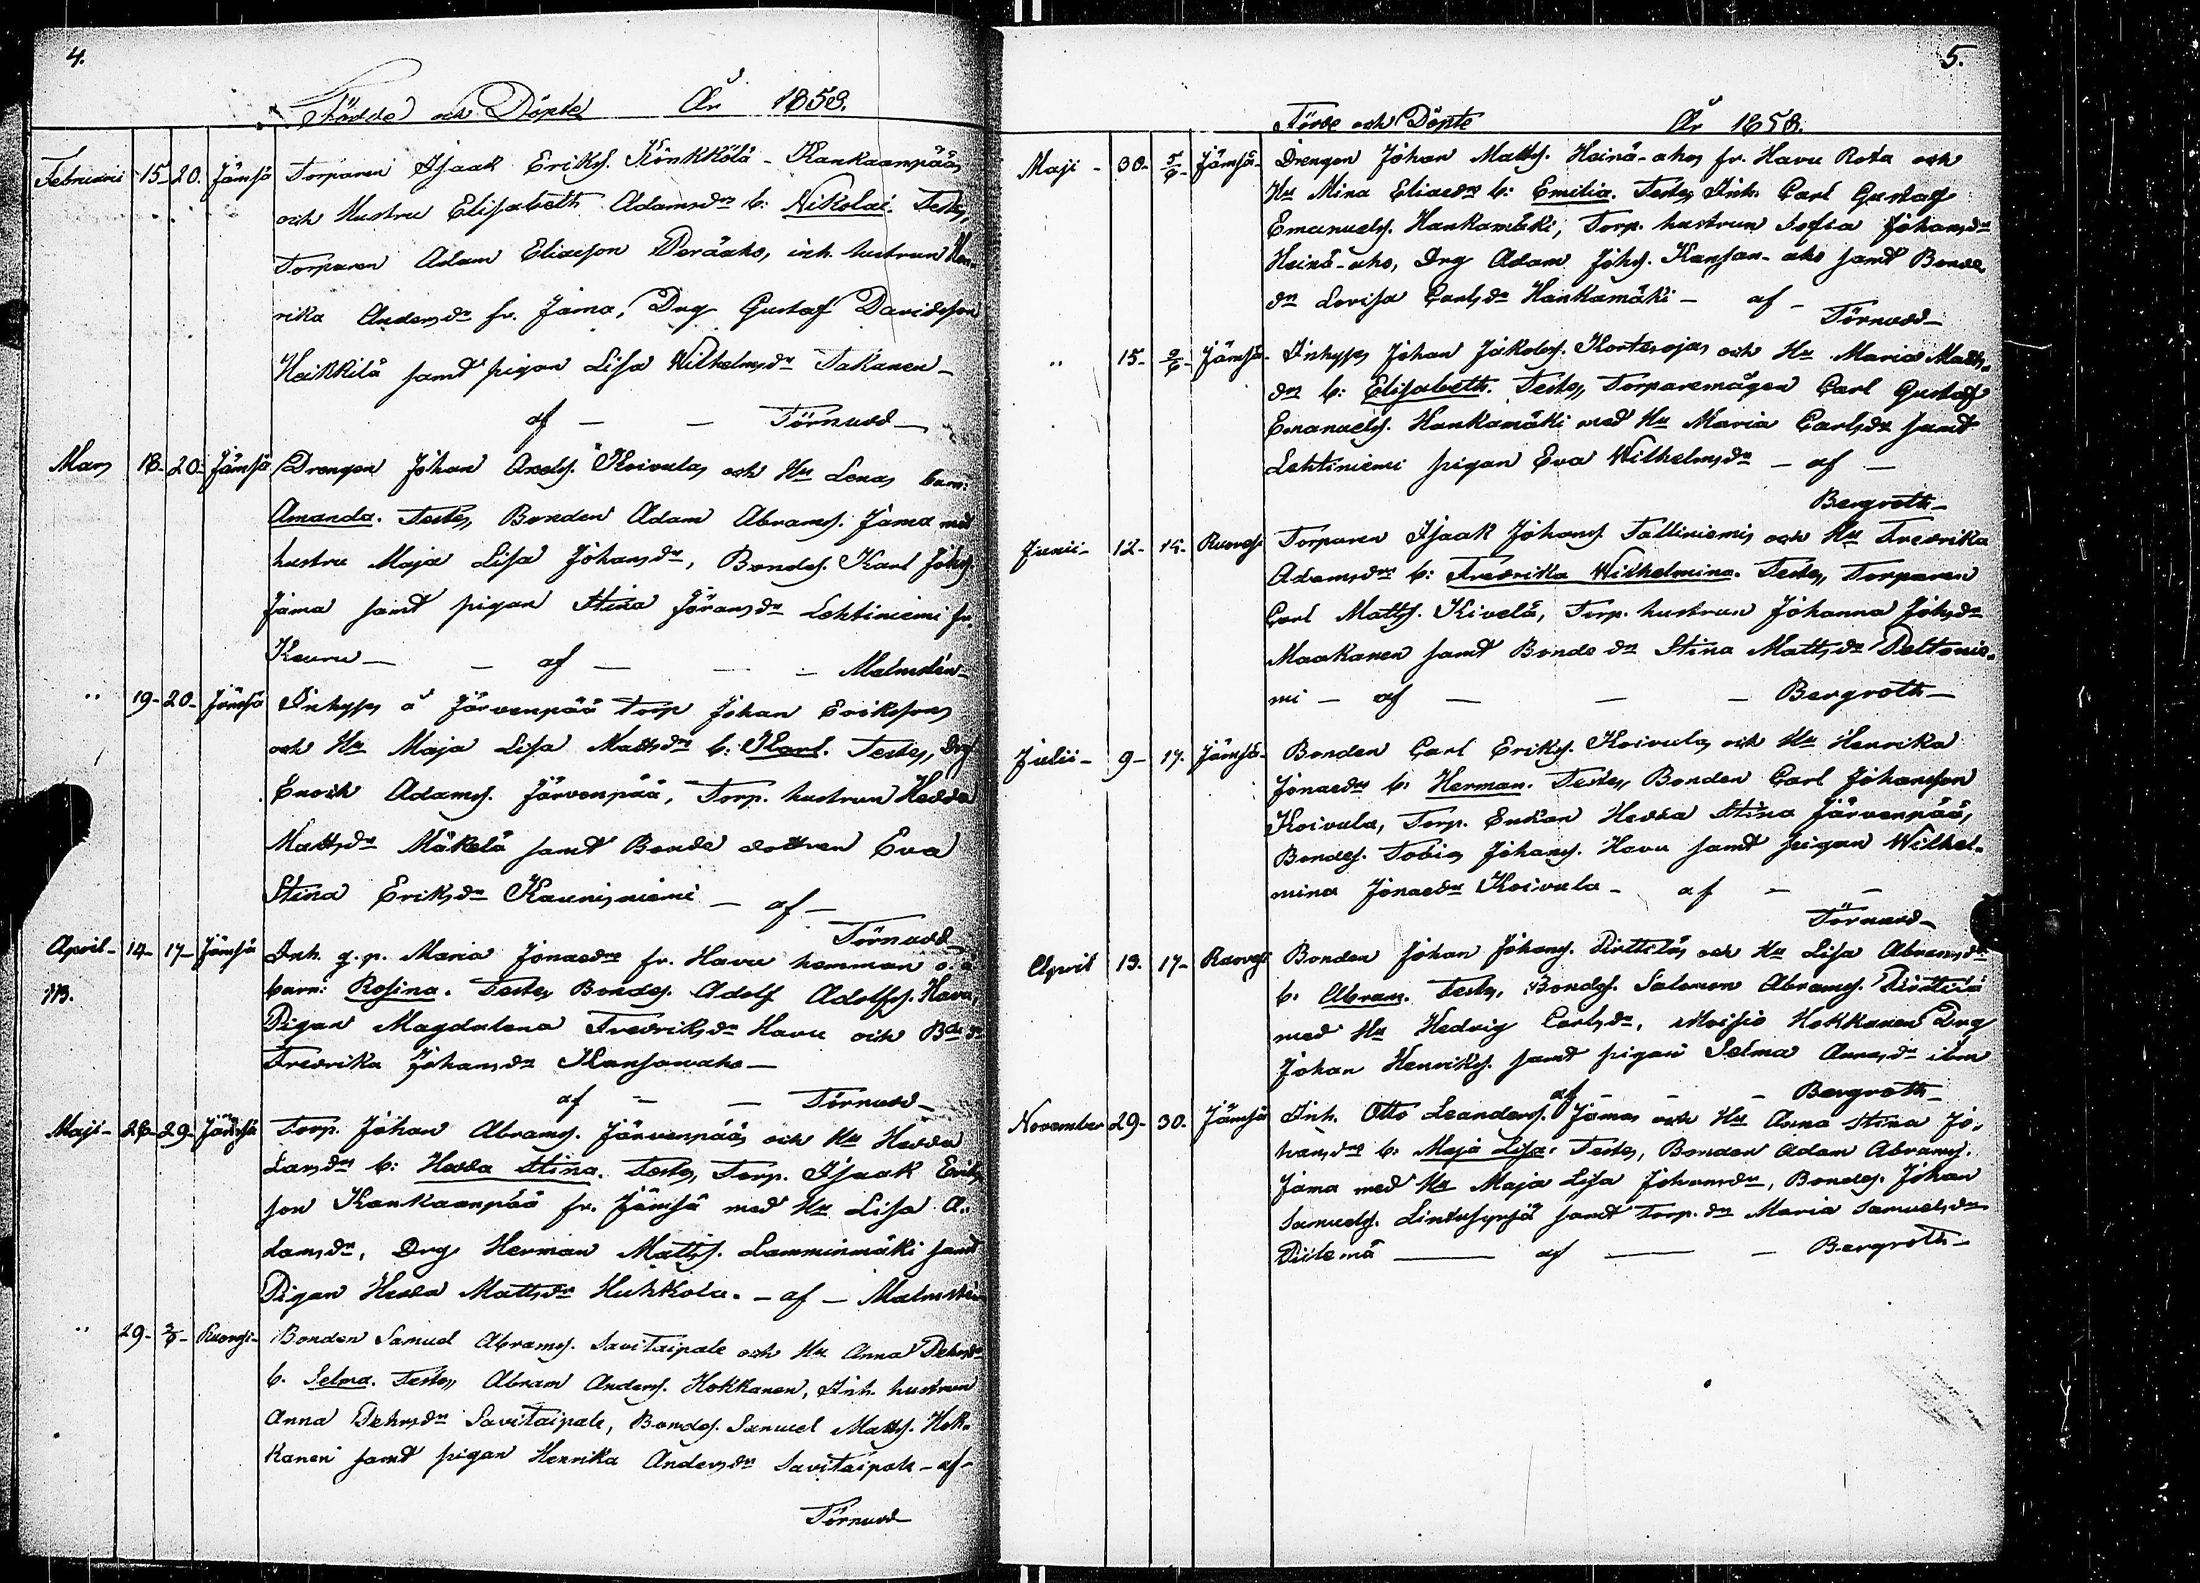 4.
Födde och Döpte År 1858.
Februari 15 20. Jämsä Torparen Isaak Eriks. Könkkölä - Kankaanpää,
och Hustru Elisabeth Adamsdr b: Nikolai. Testes,
Torparen Adam Eliasson Peräaho, inh. hustrun Hen-
rika Andersdr fr. Jäma, Drg Gustaf Davidsson
Heikkilä samt pigan Lisa Wilhelmsdr Takanen -
af - - Törnudd -
Mars 18 - 20 - Jämsä Drengen Johan Axels. Koivula, och Hu Lena, barn:
Amanda. Testes, Bonden Adam Abrams. Jäma med
hustru Maja Lisa Johansdr, Bondes. Karl Johs.
Jäma samt pigan Stina Göransdr Lehtiniemi fr.
Keuru - - af - - Malmstén -
" 19 - 20 - Jämsä Inhyss å Järvenpää Torp Johan Eriksson
och Hu Maja Lisa Mattsdr b: Karl. Testes, Drg
Enoch Adams. Järvenpää, Torp. hustrun Hedda
Mattsdr Mäkelä samt Bonde dottren Eva
Stina Eriksdr Kaunisniemi - af -
Törnudd -
April - 14 - 17 - Jämsä Inh. q.p. Maria Jonaedr fr. Havu hemman o.ä.
barn: Rosina. Testes Bondes. Adolf Adolfs. Havu,
Pigan Magdalena Fredriksdr Havu och Bdedr
Fredrika Johansdr Kansanaho -
af - - Törnudd -
Maji - 26 - 29 - Jämsä Torp. Johan Abrams. Järvenpää, och Hu Hedda
Larsdr b: Hedda Stina. Testes, Torp. Isaak Eriks
son Kankaanpää fr. Jämsä med Hu Lisa A-
damsdr, Drg Herman Matts. Lamminmäki samt
Pigan Hedda Mattsdr Huhkola. - af - Malmstén
" 29 - Ruovesi - Bonden Samuel Abrams. Savitaipale och Hu Anna
b. Selma. Testes, Abram Anders. Hokkanen, Inh. hustrun
Anna Savitaipale, Bondes. Samuel Matts. Hok-
kanen samt pigan Henrika Andersdr Savitaipale - af -
Törnudd
5.
Födde och Döpte År 1858.
Maji - 30 - 5/6 - Jämsä - Drengen Johan Matts. Heinä-aho, fr. Havu Rota och
Hu Mina Eliaedr b: Emilia. Testes, Inh. Carl Gustaf
Emanuels. Hankamäki, Torp. hustrun Sofia Johansdr
Heinä-aho, Drg Adam Johs. Kansan-aho samt Bonde
dr Lovisa Carlsdr Hankamäki - af -
Törnudd -
" 15 - Jämsä - Inhyss, Johan Jakobs. Kortesoja, och Hu Maria Matts-
dr b: Elisabeth. Testes, Torparemågen Carl Gustaf
Emanuels. Hankamäki med Hu Maria Carlsdr samt
Lehtiniemi pigan Eva Wilhelmsdr - af -
Bergroth -
Junii - 12 - Ruovesi Torparen Isaak Johans. Talliniemi, och Hu Fredrika
Adamsdr b: Fredrika Wilhelmina. Testes, Torparen
Carl Matts. Kivelä, Torp. hustrun Johanna Johsdr
Maakanen samt Bonde dr Stina Mattsdr Peltonie-
mi - af - - Bergroth -
Julii - 9 - 17. Jämsä - Bonden Carl Eriks. Koivula, och Hu Henrika
Jonaedr b. Herman. Testes, Bonden Carl Johansson
Koivula, Torp. Enkan Hedda Stina Järvenpää,
Bondes. Tobias Johans. Havu samt pigan Wilhel-
mina Jonaedr Koivula - af - -
Törnudd -
April 13. 17 - Ruovesi Bonden Johan Johans. Pirttilä, och Hu Lisa Abramsdr
b. Abram. Testes, Bondes. Salomon Abrams. Pirttilä
med Hu Hedvig Carlsdr, Moisio Hokkanen Drg
Johan Henriks. samt pigan Selma Annasdr ibm
af - - Bergroth -
November 29 - 30. Jämsä Inh. Otto Leanders. Jäma, och Hu Anna Stina Jo-
hansdr b. Maja Lisa. Testes, Bonden Adam Abrams.
Jäma med Hu Maja Lisa Johansdr, Bondes. Johan
Samuels. Lintusyrjä samt Torp. dr Maria Samuelsdr
Piilemä - af - - Bergroth -